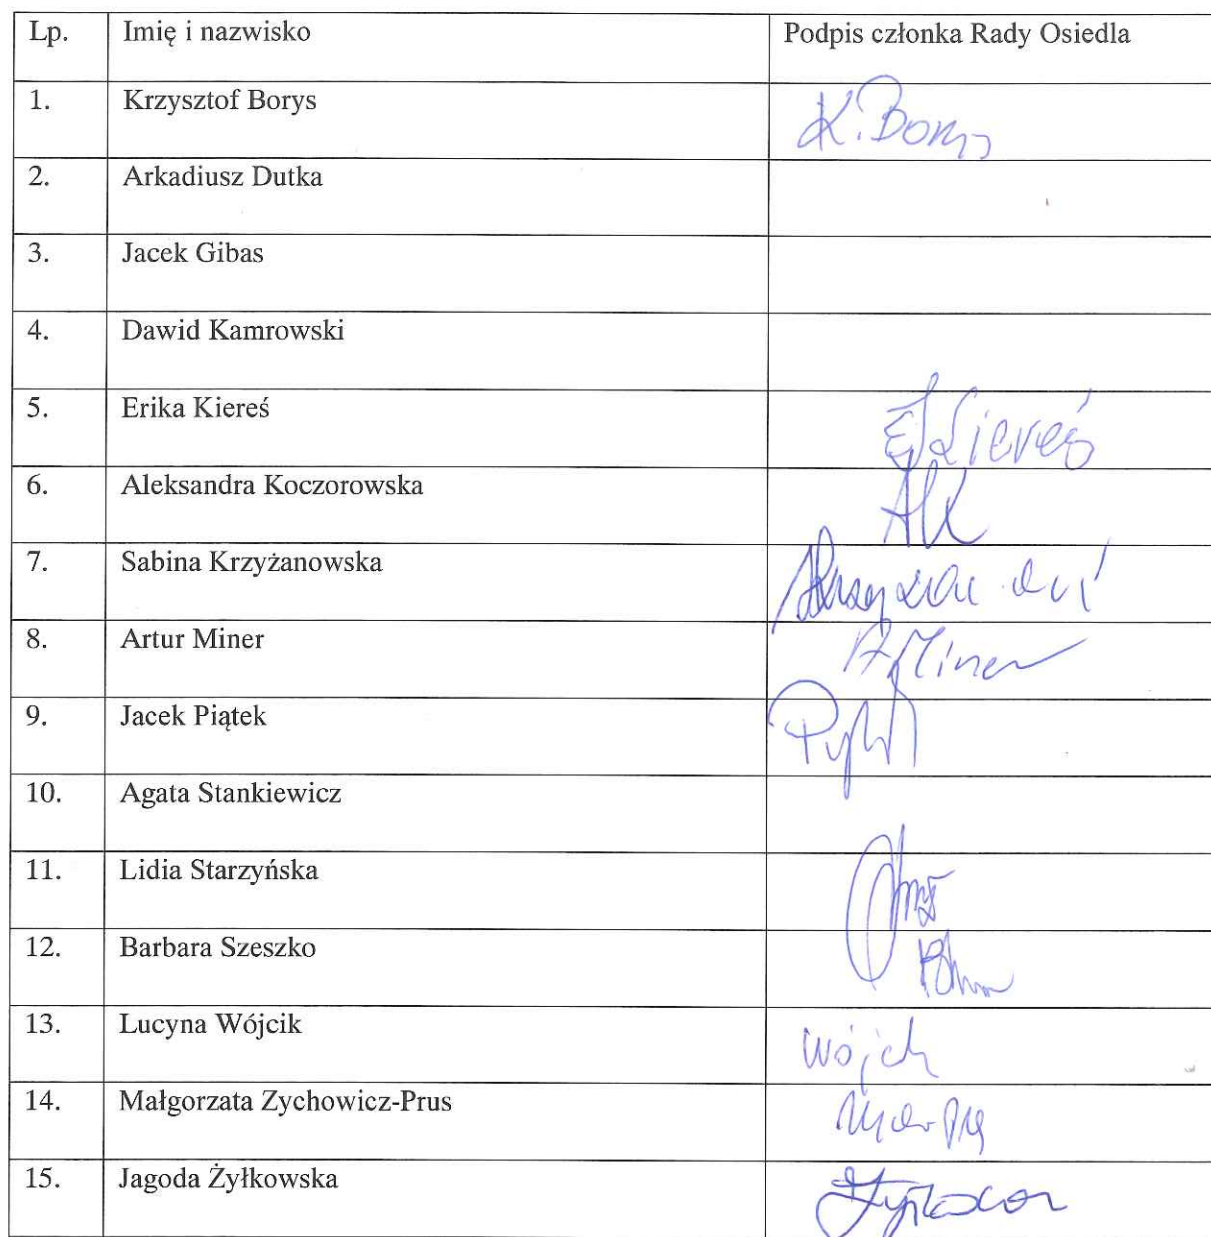 Lp. Imię i nazwisko Podpis członka Rady Osiedla
1. Krzysztof Borys K. Borys
2. Arkadiusz Dutka
3. Jacek Gibas
4. Dawid Kamrowski
5. Erika Kiereś E Kiereś
6. Aleksandra Koczorowska AK
7. Sabina Krzyżanowska
8. Artur Miner A Miner
9. Jacek Piątek
10. Agata Stankiewicz
11. Lidia Starzyńska
12. Barbara Szeszko
13. Lucyna Wójcik Wójcik
14. Małgorzata Zychowicz-Prus
15. Jagoda Żyłkowska